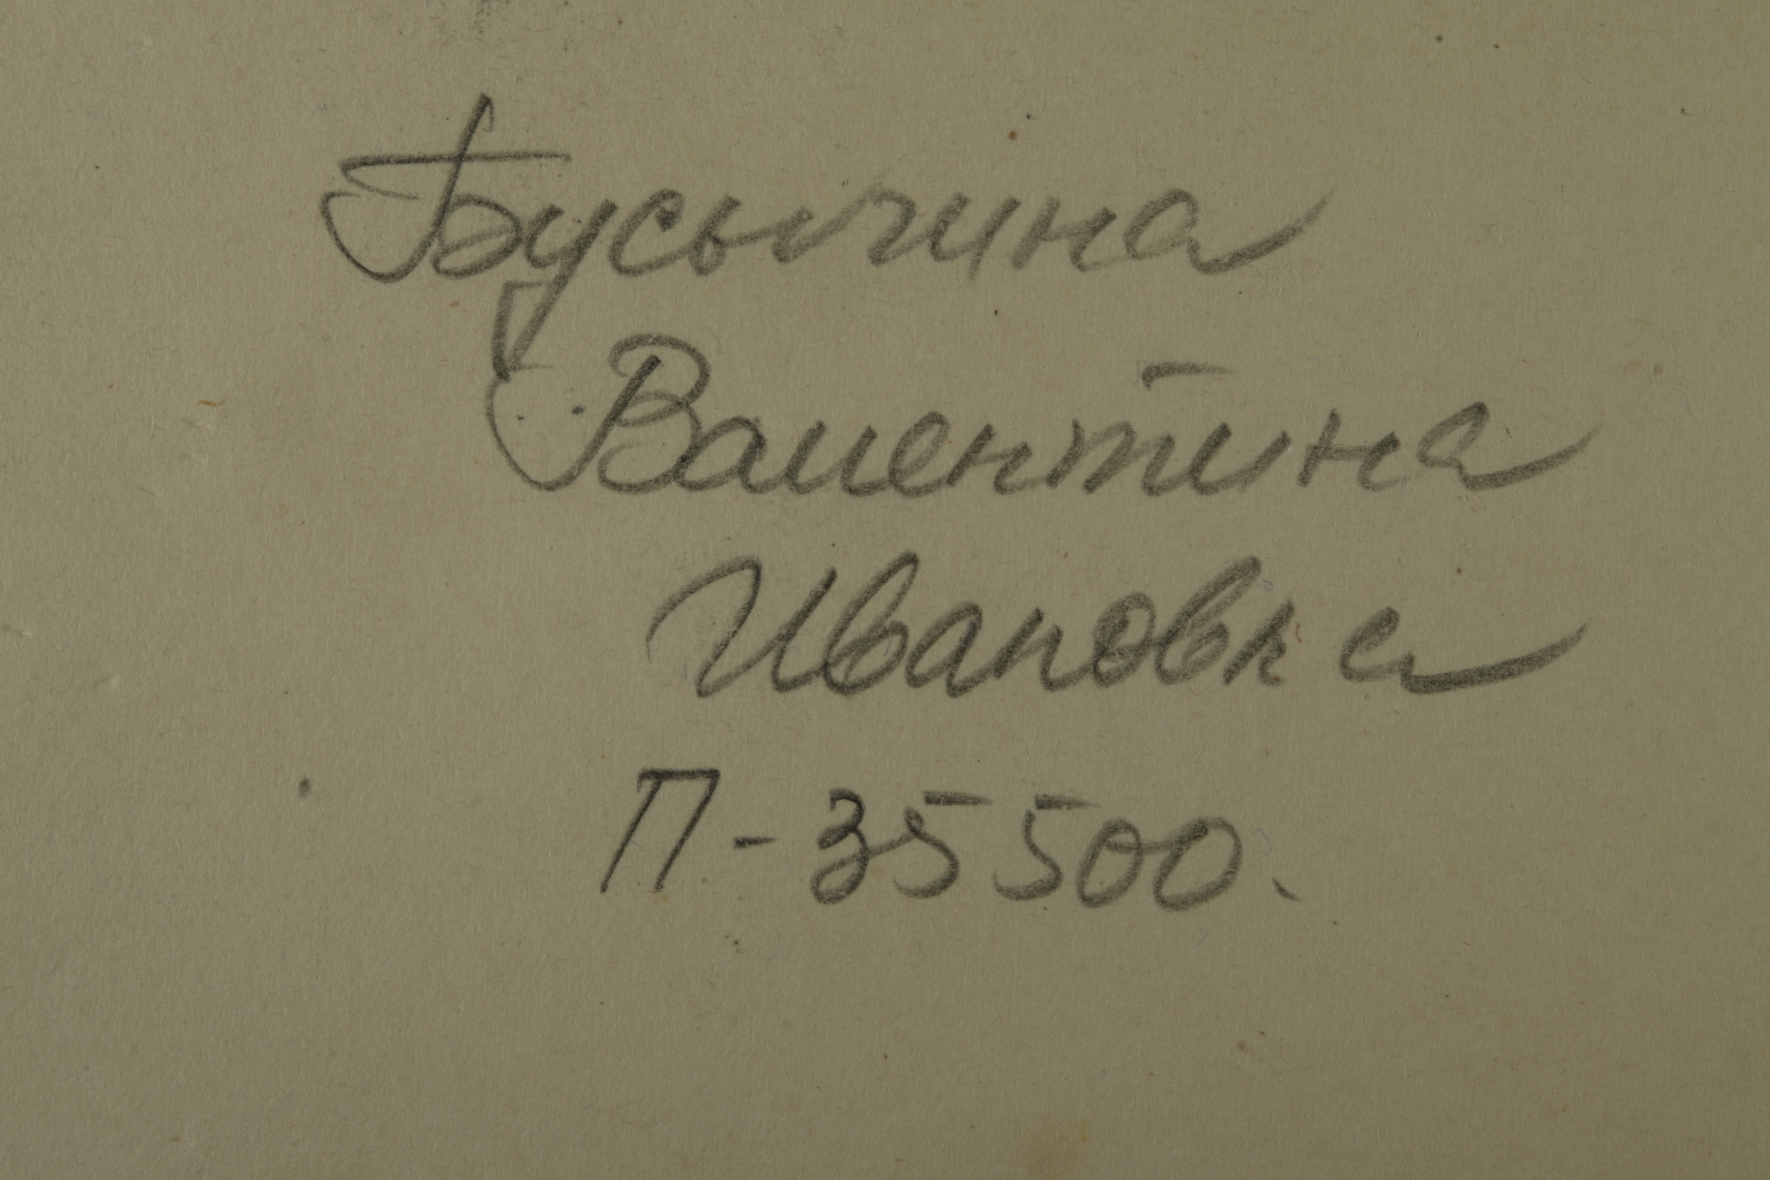 Бусычина
Валентина
Ивановна
П-35500.